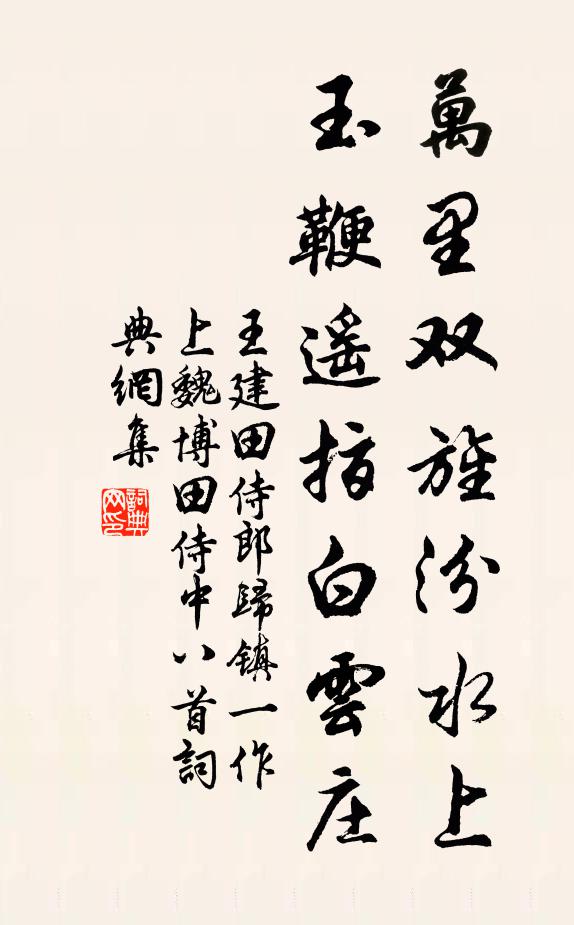 萬里双旌汾水上
玉鞭遥指白雲庄
王建田侍郎歸鎮一作
上魏博田侍中八首詞
典網集
詞典網印